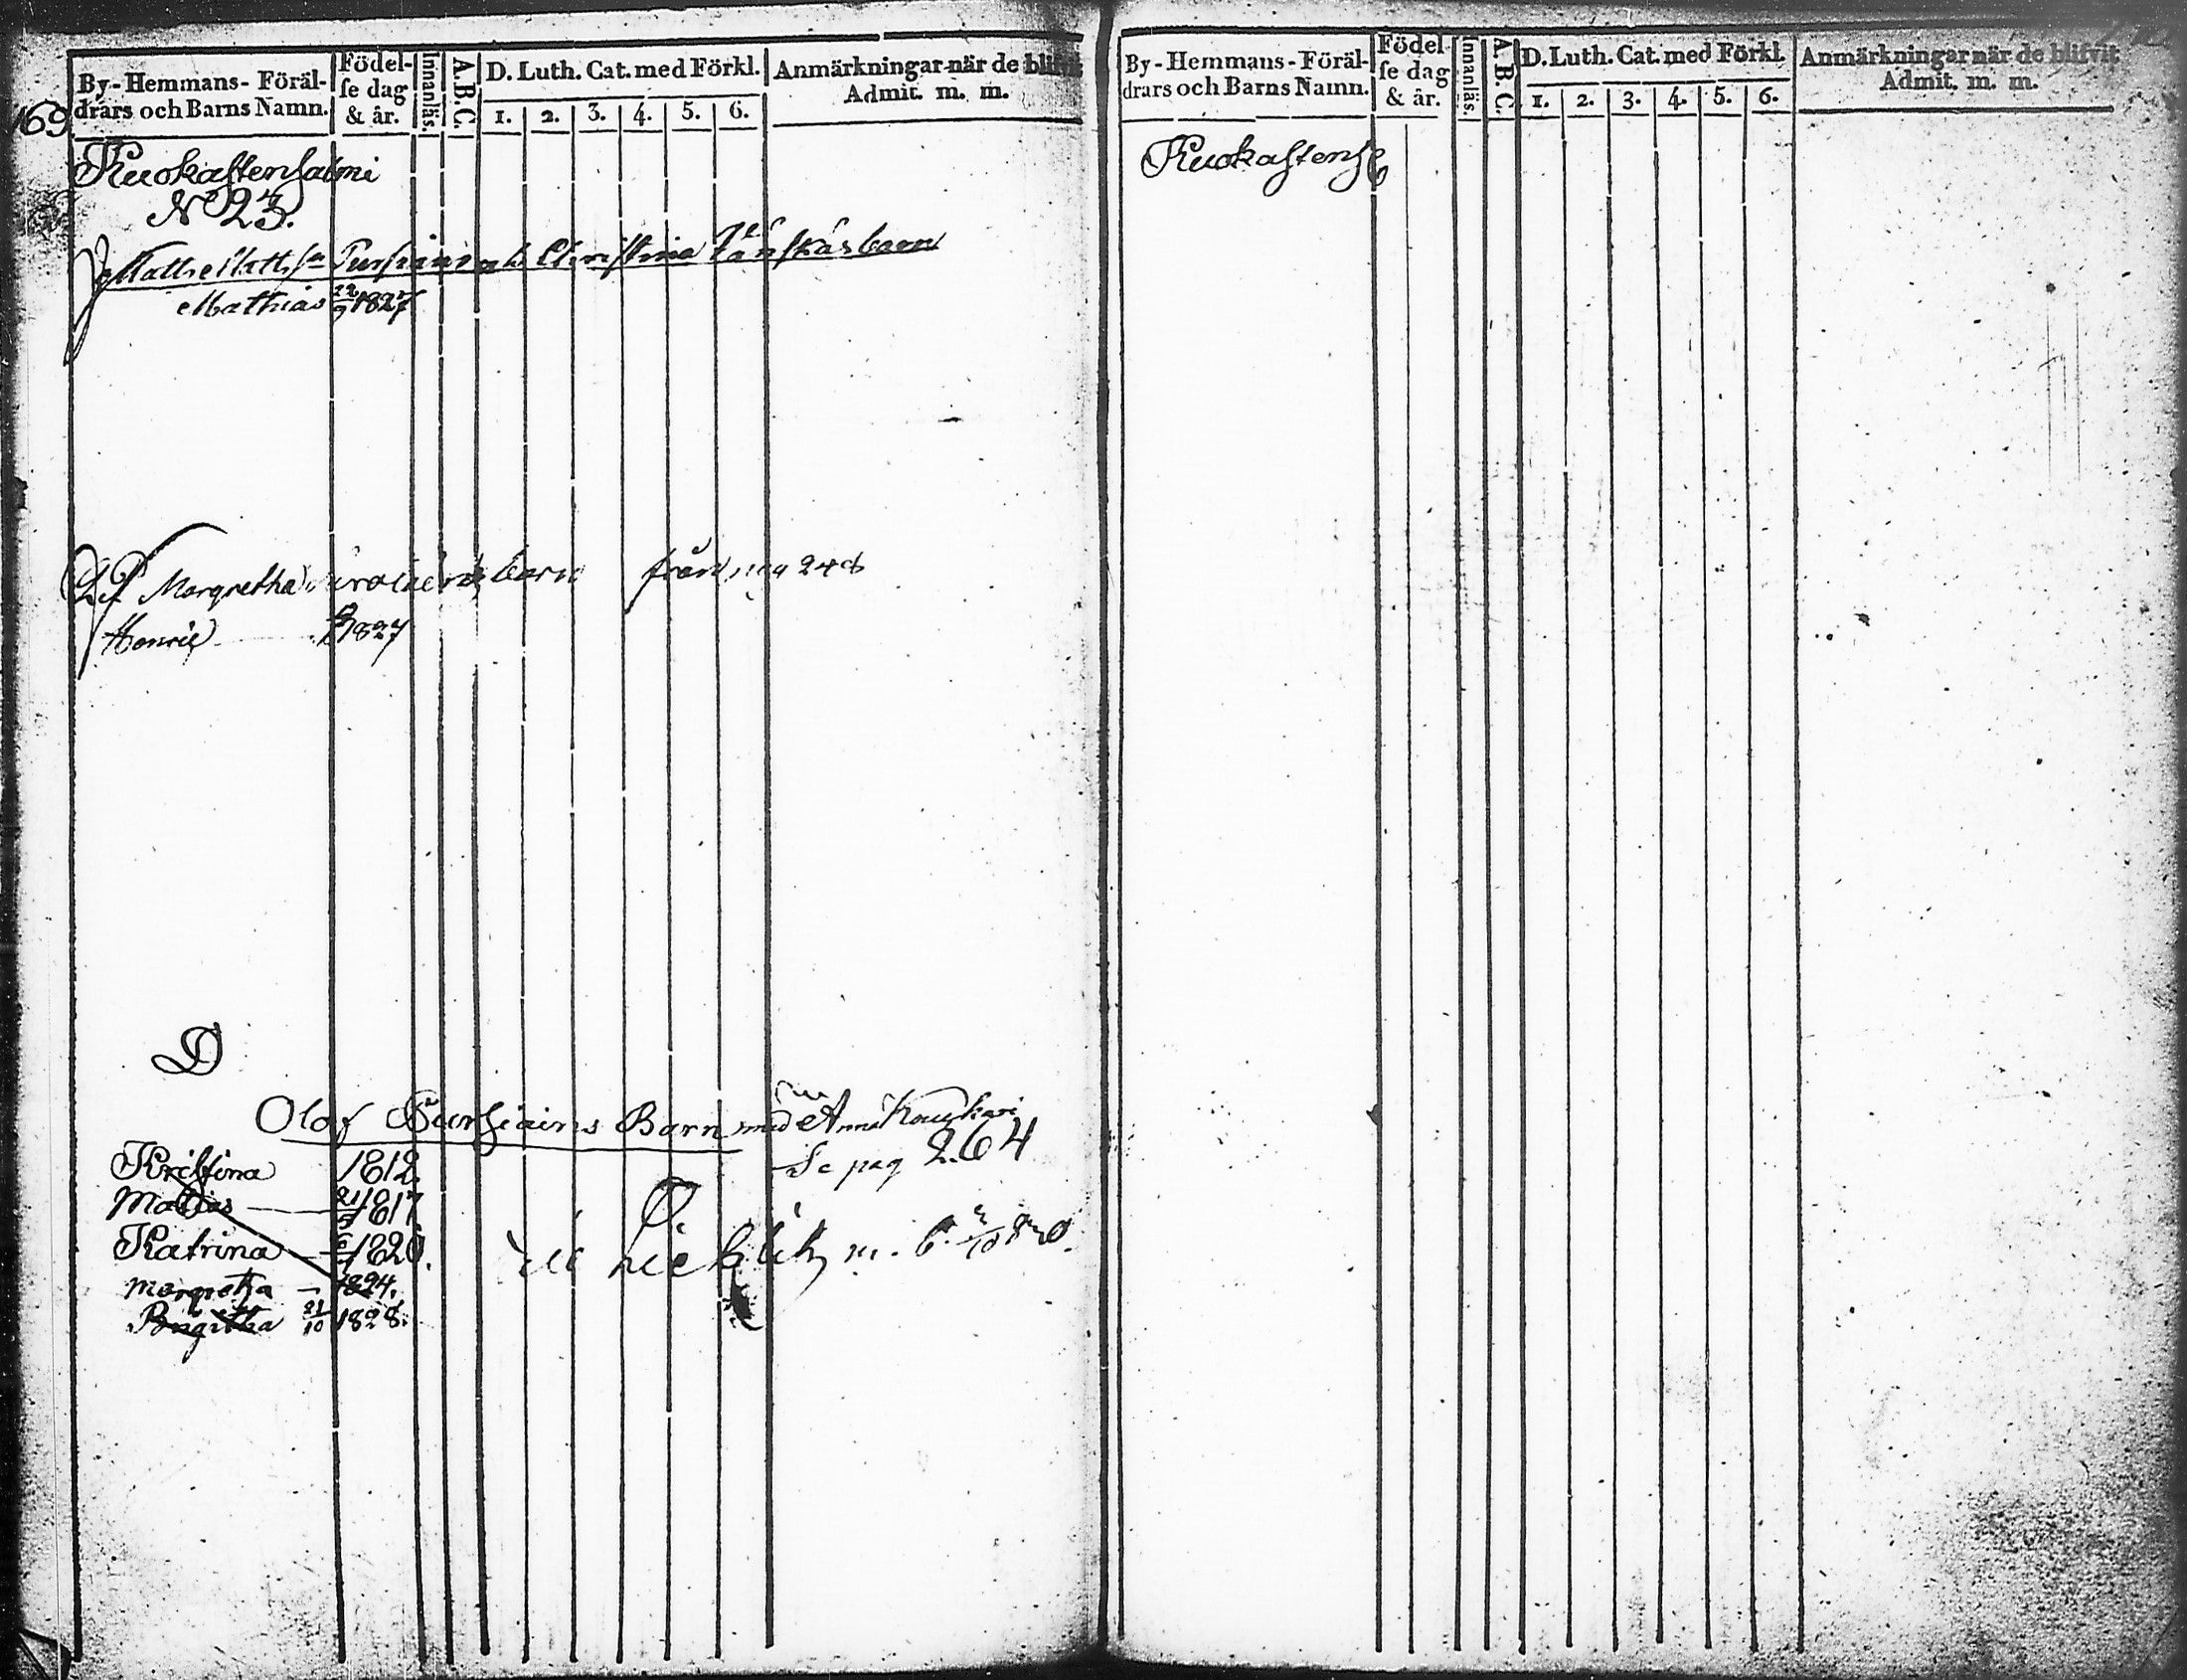 169
By-Hemmans-Föräl-
drars och Barns Namn.
Födel-
se dag
& år.
Innanläs.
A.B.C.
D. Luth. Cat. med Förkl.
1. 2. 3. 4. 5. 6.
Anmärkningar när de blifvit
Admit. m. m.
Kuokastensalmi
No 23.
Christina barn
Mathias 22/9 1827
Margretha barn från pag
Henric 1827
D
Olof Pursiains Barn med Anna
Se pag 264
Kristina 1812.
Matias 21/5 1817
Katrina 1820.
Margretha – 1824.
Brigitha 21/10 1828.
By-Hemmans-Föräl-
drars och Barns Namn.
Födel-
se dag
& år.
Innanläs.
A.B.C.
D. Luth. Cat. med Förkl.
1. 2. 3. 4. 5. 6.
Anmärkningar när de blifvit
Admit. m. m.
Kuokastens